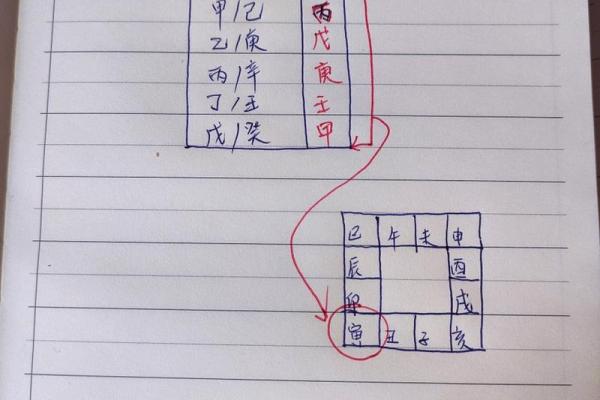 甲/己 丙
乙/庚 戊
丙/辛 庚
丁/壬 壬
戊/癸 甲
巳 午 未 申
辰 酉
卯 戌
寅 丑 子 亥